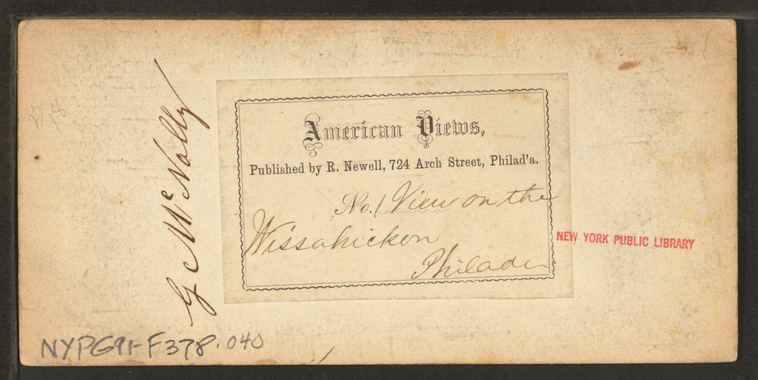 American Views,
Published by R. Newell, 724 Arch Street, Philad'a.
No. 1 View on the
Wissahickon
Philade
G McNally
NEW YORK PUBLIC LIBRARY
NYPG91-F378.040